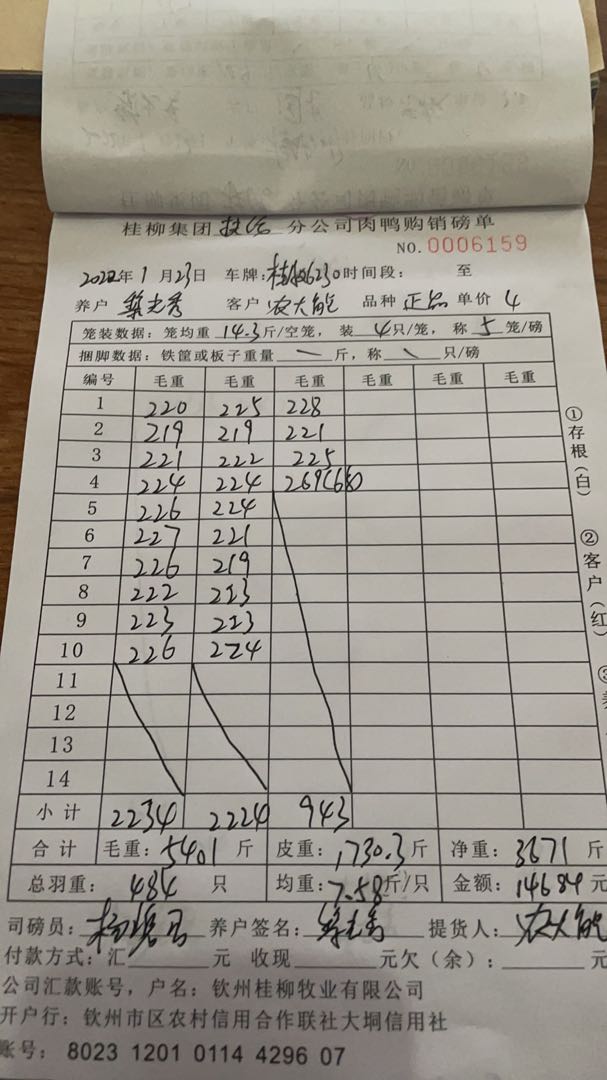 桂柳集团 分公司肉鸭购销磅单
NO.0006159
2022年1月23日 车牌:桂 6230时间段: 至
养户 黎光秀 客户 农大能 品种 正品 单价 4
笼装数据: 笼均重 14.3斤/空笼, 装 4只/笼, 称 5 笼/磅
捆脚数据: 铁筐或板子重量 一 斤, 称 、 只/磅
编号 毛重 毛重 毛重 毛重 毛重 毛重
1 220 225 228
2 219 219 221
3 221 222 225
4 224 224 269(6笼)
5 226 224
6 227 221
7 226 219
8 222 223
9 223 223
10 226 224
11
12
13
14
小计 2234 2224 943
合计 毛重: 5401 斤 皮重: 1730.3斤 净重: 3671 斤
总羽重: 484 只 均重: 7.58斤/只 金额: 14684元
司磅员: 养户签名: 黎光秀 提货人: 农大能
付款方式: 汇 元 收现 元欠(余): 元
公司汇款账号, 户名: 钦州桂柳牧业有限公司
开户行: 钦州市区农村信用合作联社大垌信用社
账号: 8023 1201 0114 4296 07
①存根(白)
②客户(红)
③